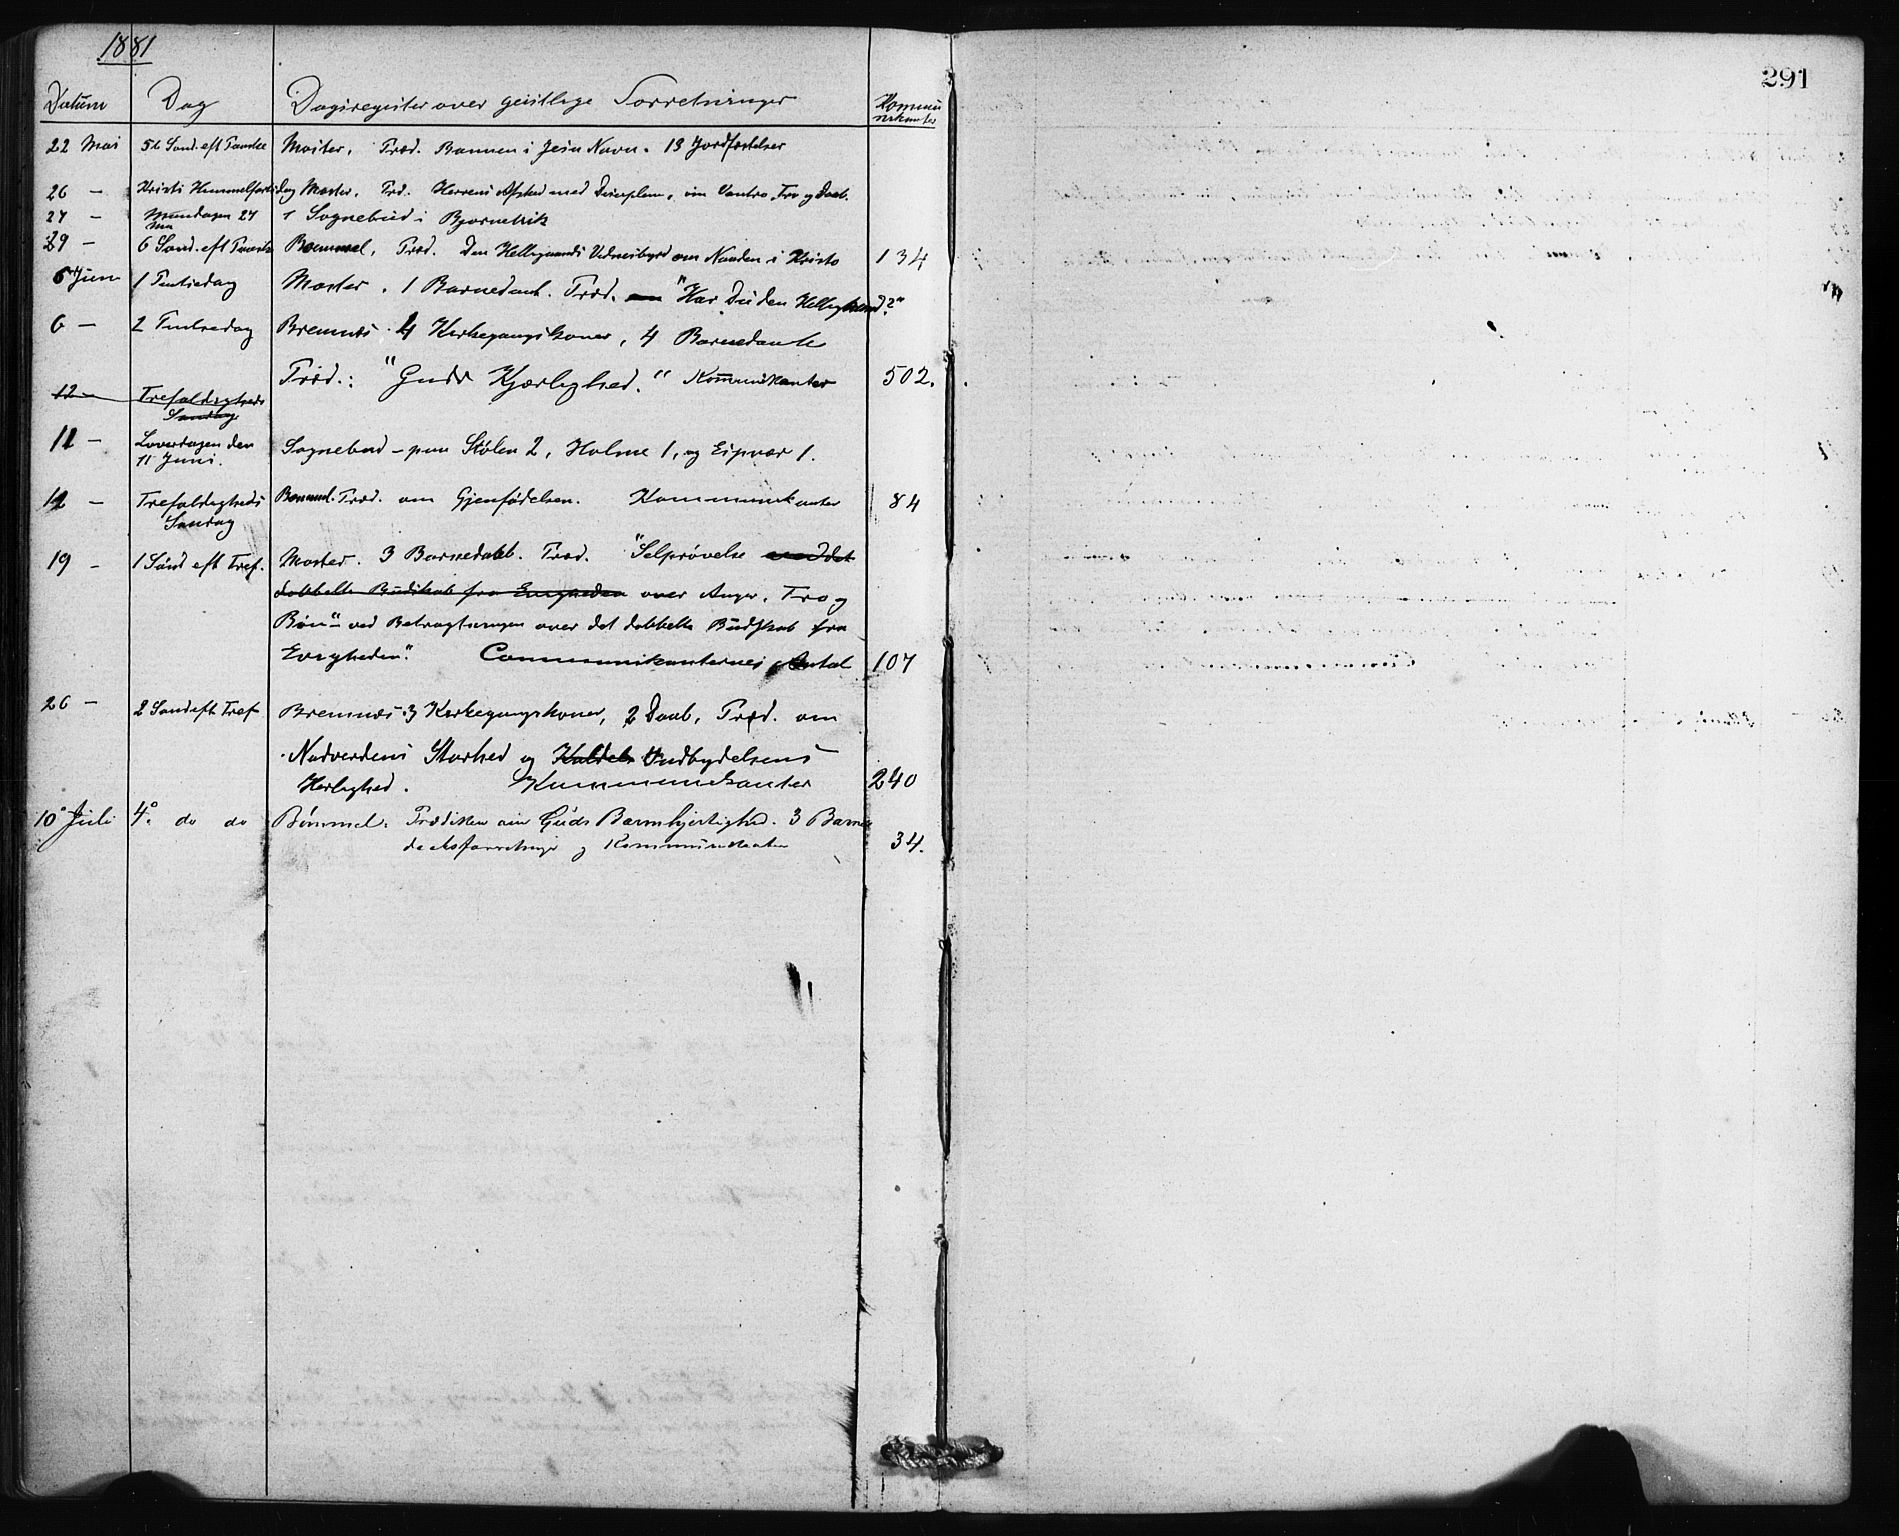 1881
291
Datum Dag Dagsregister over geistlige Forretninger Kommu
nikanter
22 Mai 5te Sønd. eft Paaske Moster. Præd. Bønnen i Jesu Navn. 13 Jordfæstelser
26 - Kristi Himmelfartsdag Moster. Præd. Herrens Afsked med Disciplene, om Vantro, Tro og Daab.
27 - 27 1 Sognebud i
Mai
29 - 6 Sønd. eft Paaske Bømmel. Præd. Den Helligaands Vidnesbyrd om Naaden i Kristo 134
5 Juni 1 Pintsedag Moster. 1 Barnedaab. Præd. "Har Du den Helligaand?"
6 - 2 Pintsedag Bremnes. 4 Kirkegangskoner, 4 Barnedaab
Præd.: "Guds Kjærlighed." Kommunikanter 502.
12 - Trefoldigheds
Søndag
11 - Løverdagen den
11 Juni. Sognebud - paa Stølen 2, Holme 1, og Espevær 1.
12 - Trefoldigheds Bømmel. Præd. om Gjenfødelsen. Kommunikanter 84
Søndag
19 - 1 Sønd eft Tref. Moster. 3 Barnedaab. Præd. "Selprøvelse ved det
dobbelte Budskab fra Evigheden over Anger, Tro og
Bøn" ved Betragtningen over det dobbelte Budskab fra
Evigheden". Communikanternes Antal 107
26 - 2 Sønd eft Tref Bremnes. 3 Kirkegangskoner, 2 Daab, Præd. om
Nadverdens Storhed og Kaldets Indbydelsens
Herlighed. Kommunikanter 240
10 Juli 4. do do Bømmel. Prædiken om Guds Barmhjertighed. 3 Barne
daabsforretninger og Kommunikanter 34.